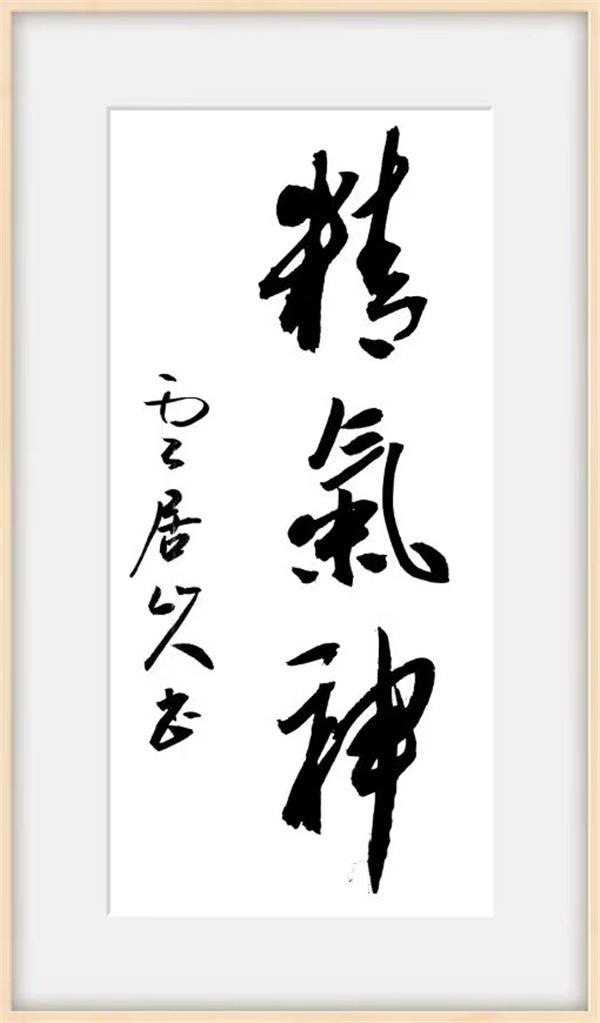 精氣神
雲居山人书